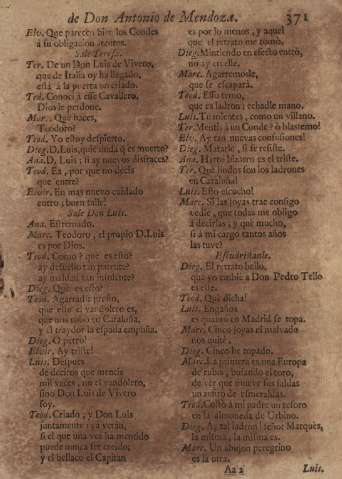 de Don Antonio de Mendoza. 371
Elv. Que parecen bien los Condes
à su obligacion atentos.
Sale Teresa.
Ter. De un Don Luis de Vivero,
que de Italia oy ha llegado,
està à la puerta un criado.
Teod. Conocì à esse Cavallero,
Dios le perdone.
Marc. Què haces,
Teodoro?
Teod. Yo estoy despierto.
Dieg. D. Luis, quien duda q̃ es muerto?
Ana. D. Luis; si ay nuevos disfraces?
Teod. Ea, por què no decis
que entre?
Elvir. En mas nuevo cuidado
entro; buen talle!
Sale Don Luis.
Ana. Estremado.
Marc. Teodoro, el propio D. Luis
es por Dios.
Teod. Como? què es esto?
ay delirio tan patente?
ay maldad tan insolente?
Dieg. Què es esto?
Teod. Agarradle presto,
que este es el vandolero,
que nos robò en Cataluña,
y el traydor la espada empuña.
Dieg. O perro!
Elvir. Ay triste!
Luis. Despues
de deciros que mentis
mil veces, no el vandolero,
sino Don Luis de Vivero
soy.
Teod. Criado, y Don Luis
juntamente? ya veràn,
si el que una vez ha mentido
puede nunca ser creido;
y el bellaco el Capitan
es por lo menos, y aquel
que el retrato me tomò.
Dieg. Mintiendo en efecto entrò,
no ay creelle.
Marc. Agarremosle,
que se escaparà.
Teod. Esso temo,
que es ladron; echadle mano.
Luis. Te mientes, como un villano.
Ter. Mentis à un Conde? ò blasfemo!
Elv. Ay tan nuevas confusiones!
Dieg. Matarle, si se resiste.
Ana. Harto bizarro es el triste.
Ter. Què lindos son los ladrones
en Cataluña!
Luis. Esto escucho!
Marc. Si las joyas trae consigo
vedle, que todas me obligo
à decirlas, y què mucho,
si à mi cargo tantos años
las tuve?
Escudriñanle.
Dieg. El retrato hello,
que yo embiè à Don Pedro Tello
es este.
Teod. Què dicha!
Luis. Engaños
es quanto en Madrid se topa.
Marc. Cinco joyas el malvado
nos quitò.
Dieg. Cinco he topado.
Marc. La primera es una Europa
de rubis, burlando el toro,
de ver que mueve sus faldas
un ayrò de esmeraldas.
Teod. Costò à mi padre un tesoro
en la almoneda de Urbino.
Dieg. Ay tal ladron! señor Marquès,
la misma, la misma es.
Marc. Un abujon peregrino
es la otra.
Aa 2 Luis.